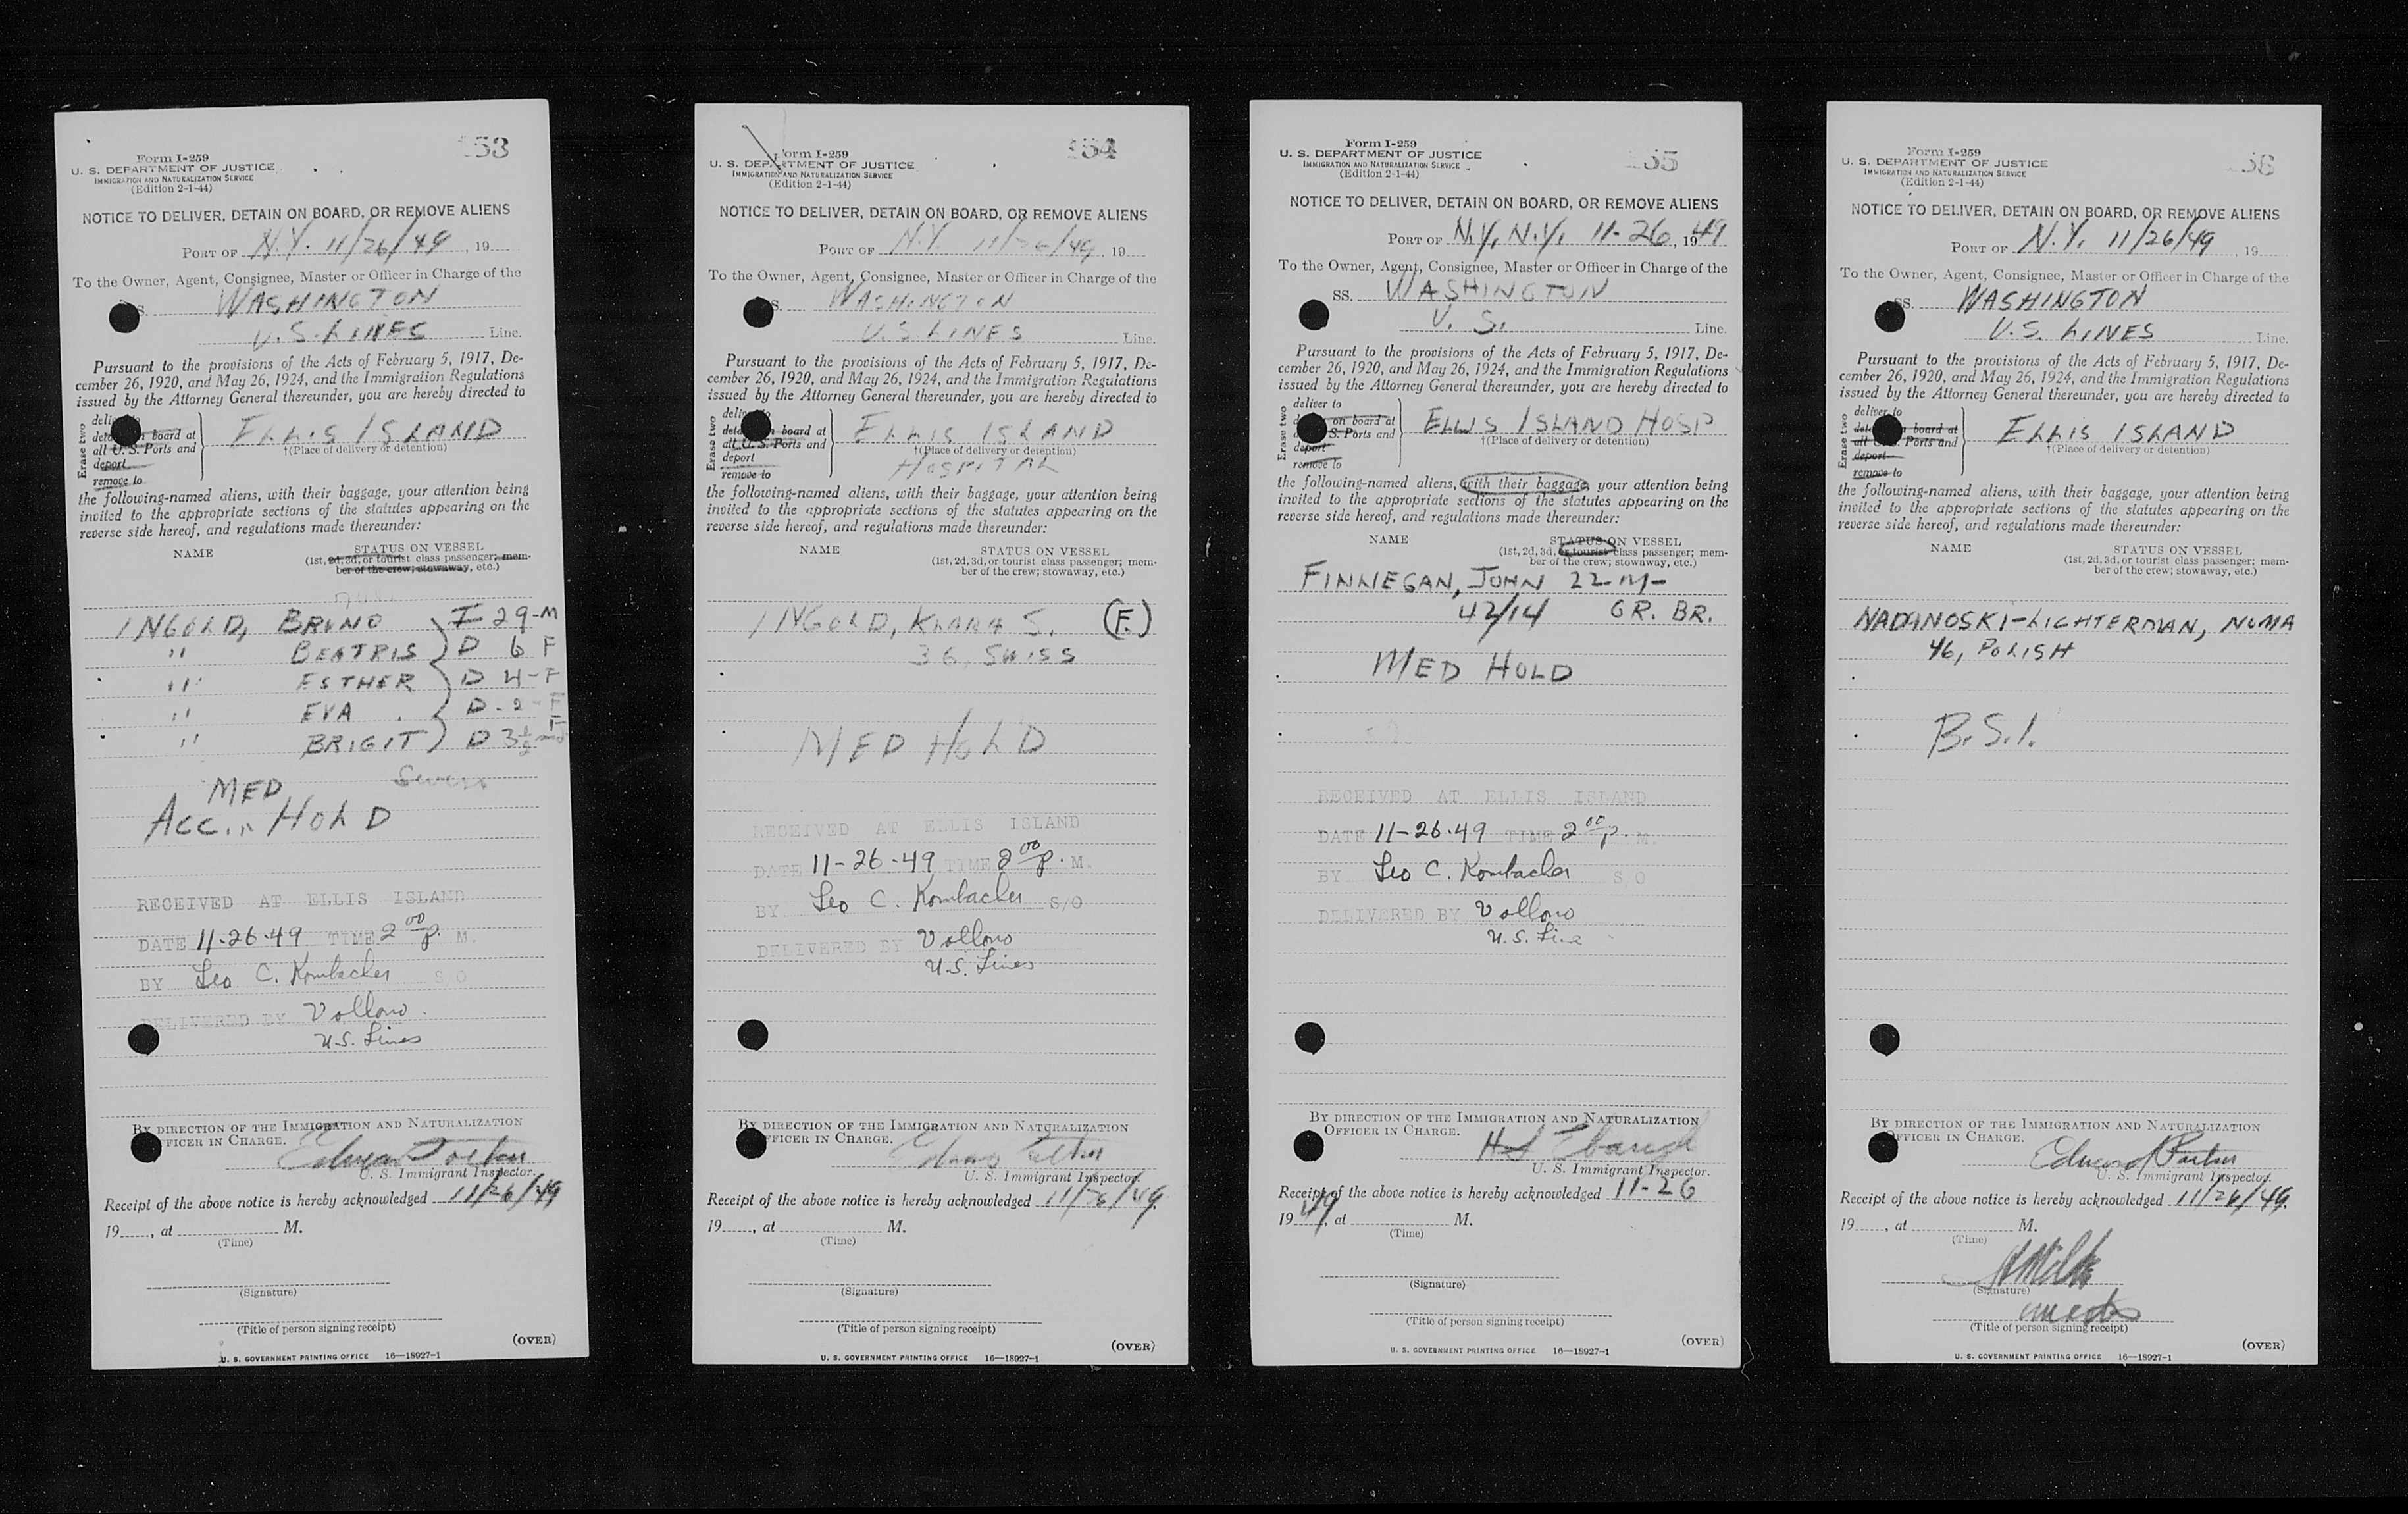 53
Form I-259
U. S. DEPARTMENT OF JUSTICE
IMMIGRATION AND NATURALIZATION SERVICE
(Edition 2-1-44)
NOTICE TO DELIVER, DETAIN ON BOARD, OR REMOVE ALIENS
PORT OF N.Y. 11/26/49, 19
To the Owner, Agent, Consignee, Master or Officer in Charge of the
S. WASHINGTON
U.S. LINES Line.
Pursuant to the provisions of the Acts of February 5, 1917, De-
cember 26, 1920, and May 26, 1924, and the Immigration Regulations
issued by the Attorney General thereunder, you are hereby directed to
Erase two
deliver to
detain on board at
all U.S. Ports and
deport
remove to
ELLIS ISLAND
†(Place of delivery or detention)
the following-named aliens, with their baggage, your attention being
invited to the appropriate sections of the statutes appearing on the
reverse side hereof, and regulations made thereunder:
NAME STATUS ON VESSEL
(1st, 2d, 3d, or tourist class passenger; mem-
ber of the crew; stowaway, etc.)
INGOLD, BRUNO I 29-M
" BEATRIS D 6 F
" ESTHER D 4-F
" EVA D-2-F
" BRIGIT D 3½ F
MED
ACC. HOLD
RECEIVED AT ELLIS ISLAND
DATE 11-26-49 TIME 2 00 P. M.
BY Leo C. Kombacher S/O
DELIVERED BY Vollono
U.S. Lines
BY DIRECTION OF THE IMMIGRATION AND NATURALIZATION
OFFICER IN CHARGE.
U. S. Immigrant Inspector.
Receipt of the above notice is hereby acknowledged 11/26/49
19, at M.
(Time)
(Signature)
(Title of person signing receipt)
(OVER)
U. S. GOVERNMENT PRINTING OFFICE 16—18927-1
54
Form I-259
U. S. DEPARTMENT OF JUSTICE
IMMIGRATION AND NATURALIZATION SERVICE
(Edition 2-1-44)
NOTICE TO DELIVER, DETAIN ON BOARD, OR REMOVE ALIENS
PORT OF N.Y. 11/26/49, 19
To the Owner, Agent, Consignee, Master or Officer in Charge of the
S. WASHINGTON
U.S. LINES Line.
Pursuant to the provisions of the Acts of February 5, 1917, De-
cember 26, 1920, and May 26, 1924, and the Immigration Regulations
issued by the Attorney General thereunder, you are hereby directed to
Erase two
deliver to
detain on board at
all U.S. Ports and
deport
remove to
ELLIS ISLAND
†(Place of delivery or detention)
HOSPITAL
the following-named aliens, with their baggage, your attention being
invited to the appropriate sections of the statutes appearing on the
reverse side hereof, and regulations made thereunder:
NAME STATUS ON VESSEL
(1st, 2d, 3d, or tourist class passenger; mem-
ber of the crew; stowaway, etc.)
INGOLD, KLARA S. (F.)
36, SWISS
MED HOLD
RECEIVED AT ELLIS ISLAND
DATE 11-26-49 TIME 2 00 P. M.
BY Leo C. Kombacher S/O
DELIVERED BY Vollono
U.S. Lines
BY DIRECTION OF THE IMMIGRATION AND NATURALIZATION
OFFICER IN CHARGE.
U. S. Immigrant Inspector.
Receipt of the above notice is hereby acknowledged 11/26/49
19, at M.
(Time)
(Signature)
(Title of person signing receipt)
(OVER)
U. S. GOVERNMENT PRINTING OFFICE 16—18927-1
55
Form I-259
U. S. DEPARTMENT OF JUSTICE
IMMIGRATION AND NATURALIZATION SERVICE
(Edition 2-1-44)
NOTICE TO DELIVER, DETAIN ON BOARD, OR REMOVE ALIENS
PORT OF N.Y. N.Y. 11-26, 1949
To the Owner, Agent, Consignee, Master or Officer in Charge of the
SS. WASHINGTON
U.S. Line.
Pursuant to the provisions of the Acts of February 5, 1917, De-
cember 26, 1920, and May 26, 1924, and the Immigration Regulations
issued by the Attorney General thereunder, you are hereby directed to
Erase two
deliver to
on board at
S. Ports and
deport
remove to
ELLIS ISLAND HOSP
†(Place of delivery or detention)
the following-named aliens, with their baggage, your attention being
invited to the appropriate sections of the statutes appearing on the
reverse side hereof, and regulations made thereunder:
NAME STATUS ON VESSEL
(1st, 2d, 3d, or tourist class passenger; mem-
ber of the crew; stowaway, etc.)
FINNEGAN, JOHN 22-M-
42/14 GR. BR.
MED HOLD
RECEIVED AT ELLIS ISLAND
DATE 11-26-49 TIME 2 00 P. M.
BY Leo C. Kombacher S/O
DELIVERED BY Vollono
U.S. Line
BY DIRECTION OF THE IMMIGRATION AND NATURALIZATION
OFFICER IN CHARGE.
U. S. Immigrant Inspector.
Receipt of the above notice is hereby acknowledged 11-26
1949, at M.
(Time)
(Signature)
(Title of person signing receipt)
(OVER)
U. S. GOVERNMENT PRINTING OFFICE 16—18927-1
56
Form I-259
U. S. DEPARTMENT OF JUSTICE
IMMIGRATION AND NATURALIZATION SERVICE
(Edition 2-1-44)
NOTICE TO DELIVER, DETAIN ON BOARD, OR REMOVE ALIENS
PORT OF N.Y. 11/26/49, 19
To the Owner, Agent, Consignee, Master or Officer in Charge of the
SS. WASHINGTON
U.S. LINES Line.
Pursuant to the provisions of the Acts of February 5, 1917, De-
cember 26, 1920, and May 26, 1924, and the Immigration Regulations
issued by the Attorney General thereunder, you are hereby directed to
Erase two
deliver to
detain on board at
all U.S. Ports and
deport
remove to
ELLIS ISLAND
†(Place of delivery or detention)
the following-named aliens, with their baggage, your attention being
invited to the appropriate sections of the statutes appearing on the
reverse side hereof, and regulations made thereunder:
NAME STATUS ON VESSEL
(1st, 2d, 3d, or tourist class passenger; mem-
ber of the crew; stowaway, etc.)
NADANOSKI-LICHTERMAN, NUMA
46, POLISH
B.S.I.
BY DIRECTION OF THE IMMIGRATION AND NATURALIZATION
OFFICER IN CHARGE.
U. S. Immigrant Inspector.
Receipt of the above notice is hereby acknowledged 11/26/49
19, at M.
(Time)
(Signature)
(Title of person signing receipt)
(OVER)
U. S. GOVERNMENT PRINTING OFFICE 16—18927-1